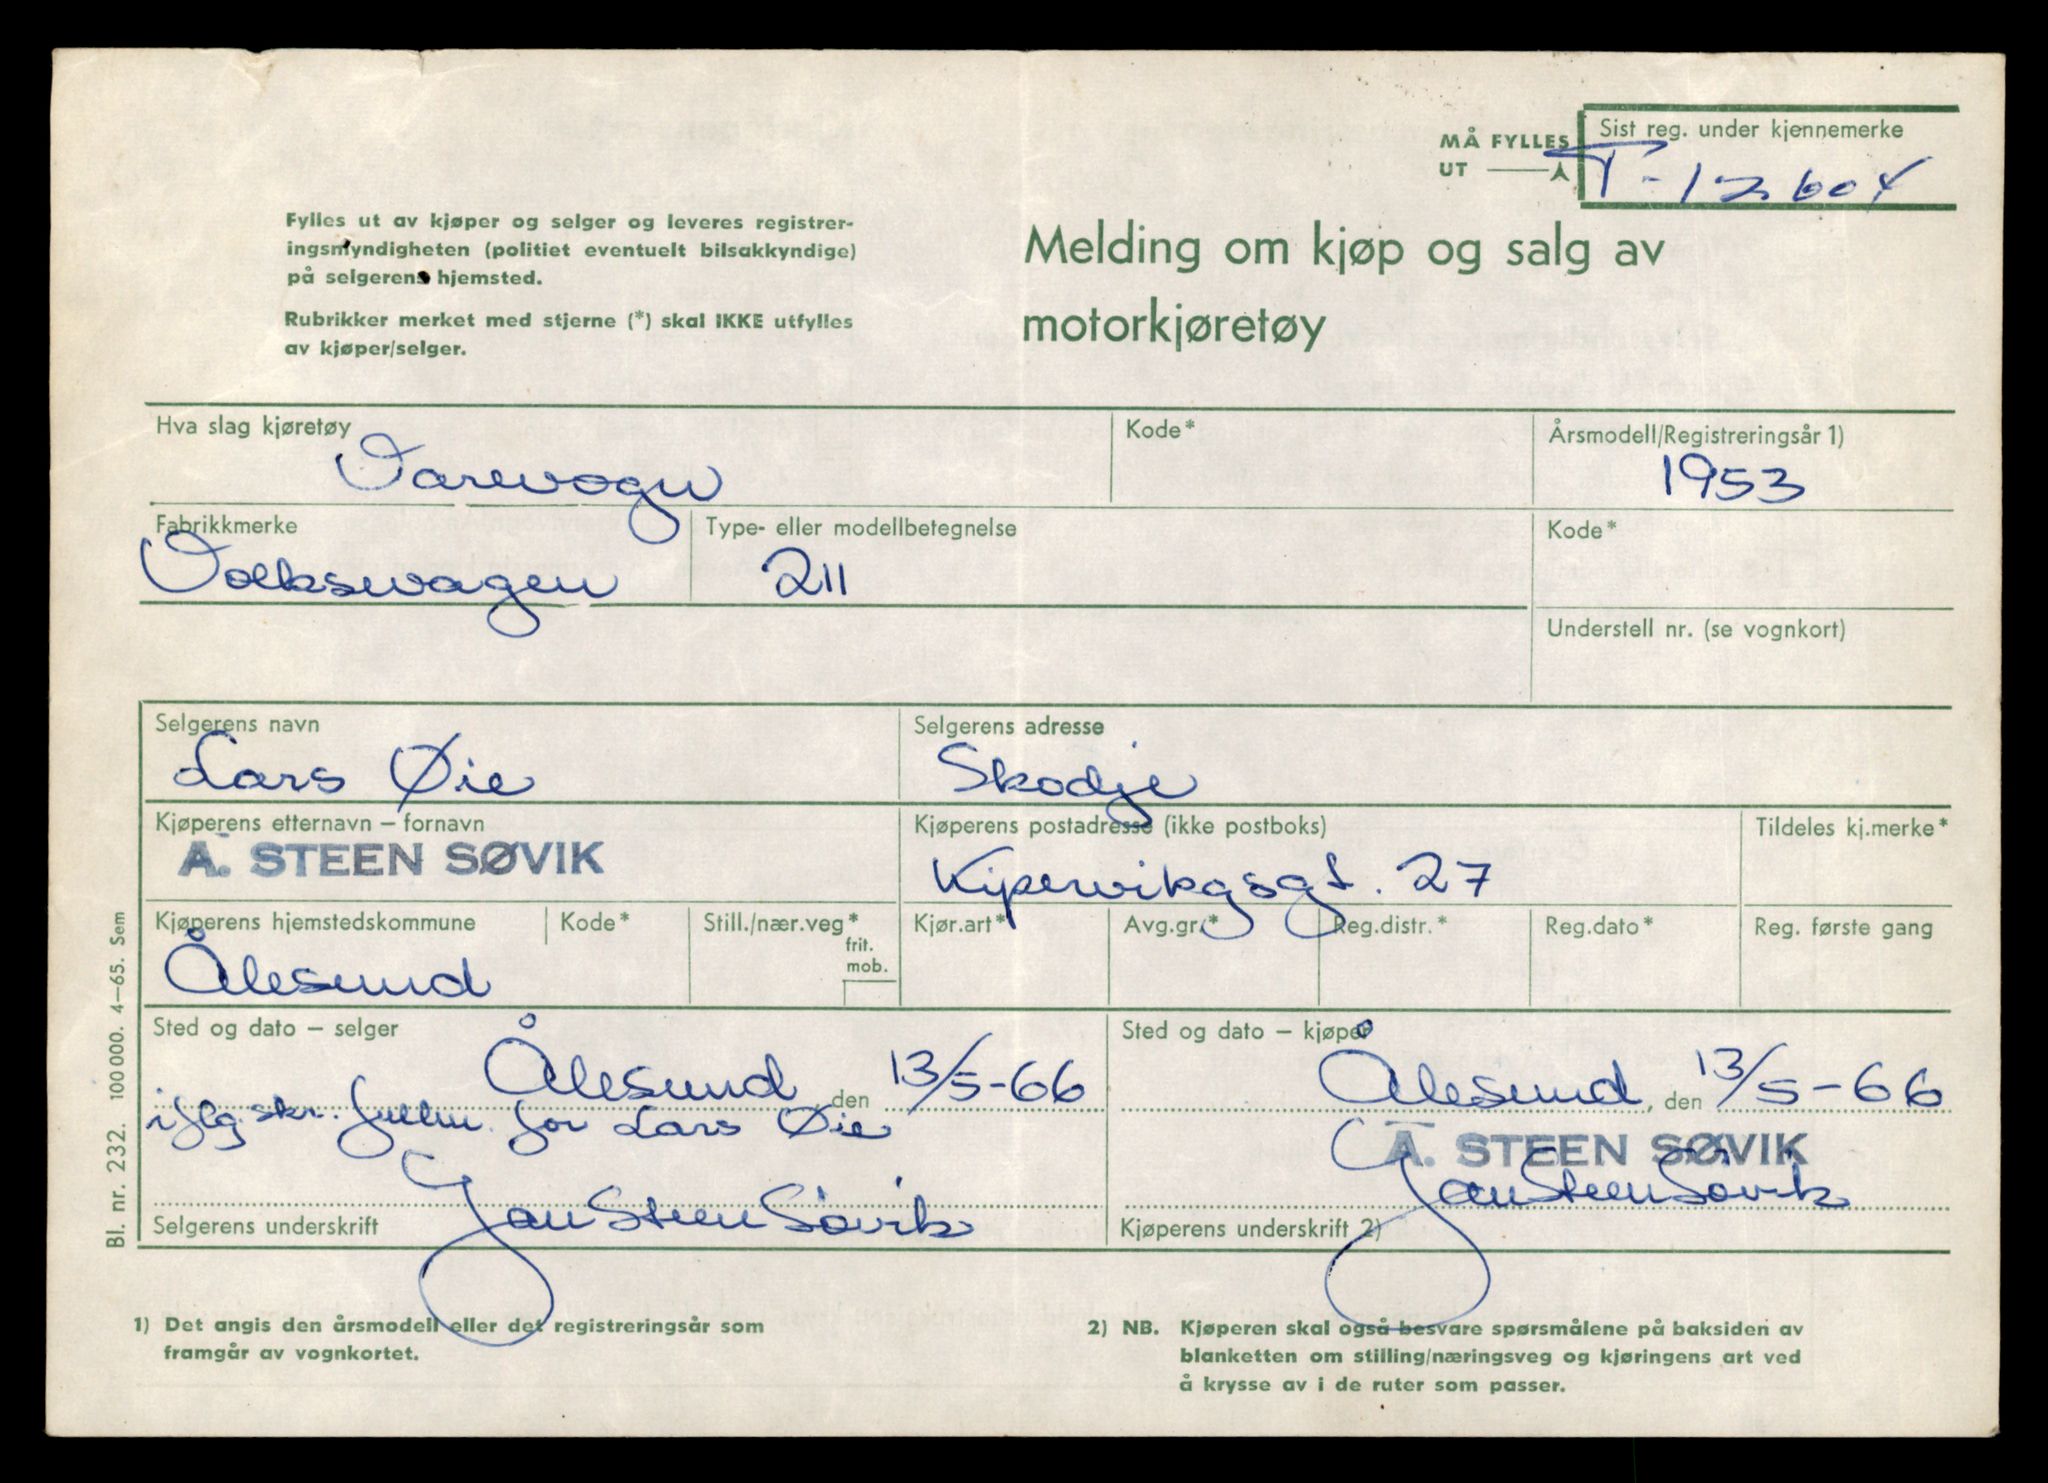 MÅ FYLLES
UT
Sist reg. under kjennemerke
T-12604
Fylles ut av kjøper og selger og leveres registrer-
ingsmyndigheten (politiet eventuelt bilsakkyndige)
på selgerens hjemsted.
Rubrikker merket med stjerne (*) skal IKKE utfylles
av kjøper/selger.
Melding om kjøp og salg av
motorkjøretøy
Hva slag kjøretøy
Varevogn
Kode*
Årsmodell/Registreringsår 1)
1953
Fabrikkmerke
Volkswagen
Type- eller modellbetegnelse
211
Kode*
Understell nr. (se vognkort)
Selgerens navn
Lars Øie
Selgerens adresse
Skodje
Kjøperens etternavn – fornavn
A. STEEN SØVIK
Kjøperens postadresse (ikke postboks)
Kipervikgsgt. 27
Tildeles kj.merke*
Kjøperens hjemstedskommune
Ålesund
Kode*
Still./nær.veg*
frit.
mob.
Kjør.art*
Avg.gr.*
Reg.distr.*
Reg.dato*
Reg. første gang
Sted og dato – selger
Ålesund, den 13/5-66
iflg. skr. fullm. for Lars Øie
Jan Steen Søvik
Selgerens underskrift
Sted og dato – kjøper
Ålesund, den 13/5-66
A. STEEN SØVIK
Jan Steen Søvik
Kjøperens underskrift 2)
Bl. nr. 232. 100 000. 4–65. Sem
1) Det angis den årsmodell eller det registreringsår som
framgår av vognkortet.
2) NB. Kjøperen skal også besvare spørsmålene på baksiden av
blanketten om stilling/næringsveg og kjøringens art ved
å krysse av i de ruter som passer.